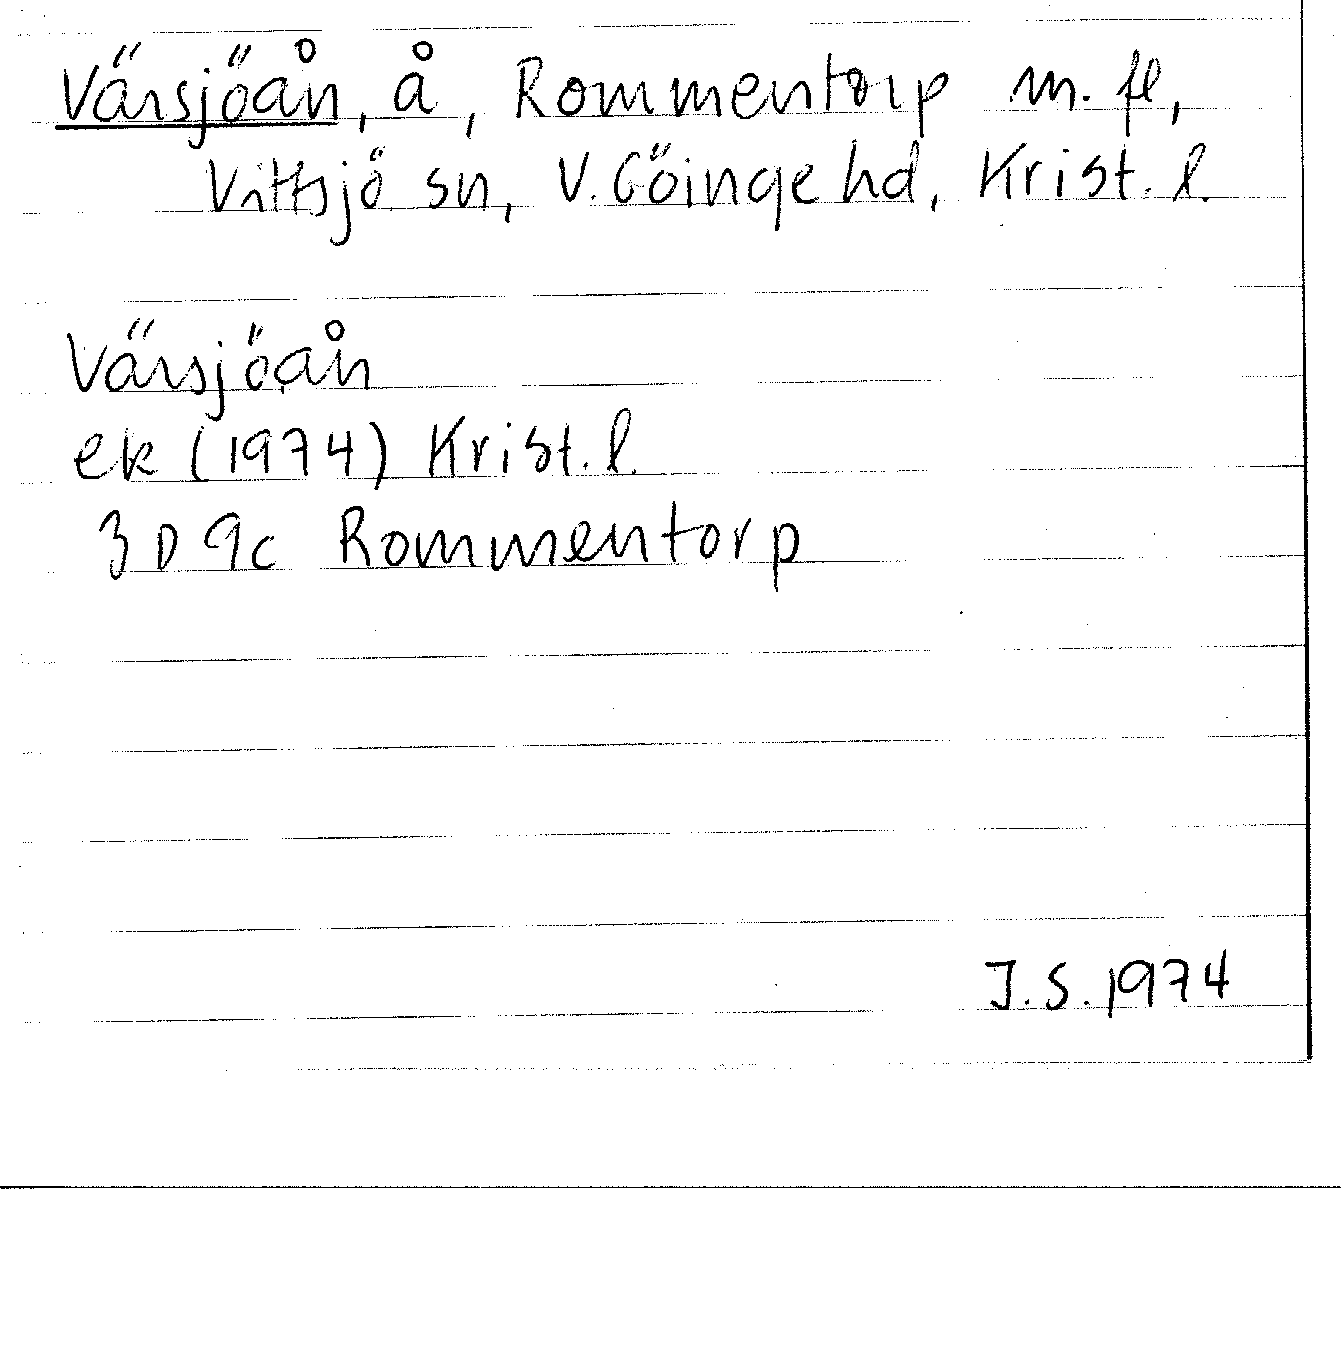 Värsjöån, å, Rommentorp m. fl,
Vittsjö sn, V. Göinge hd, Krist. l.
Värsjöån
ek (1974) Krist. l.
3D 9c Rommentorp
J.S. 1974